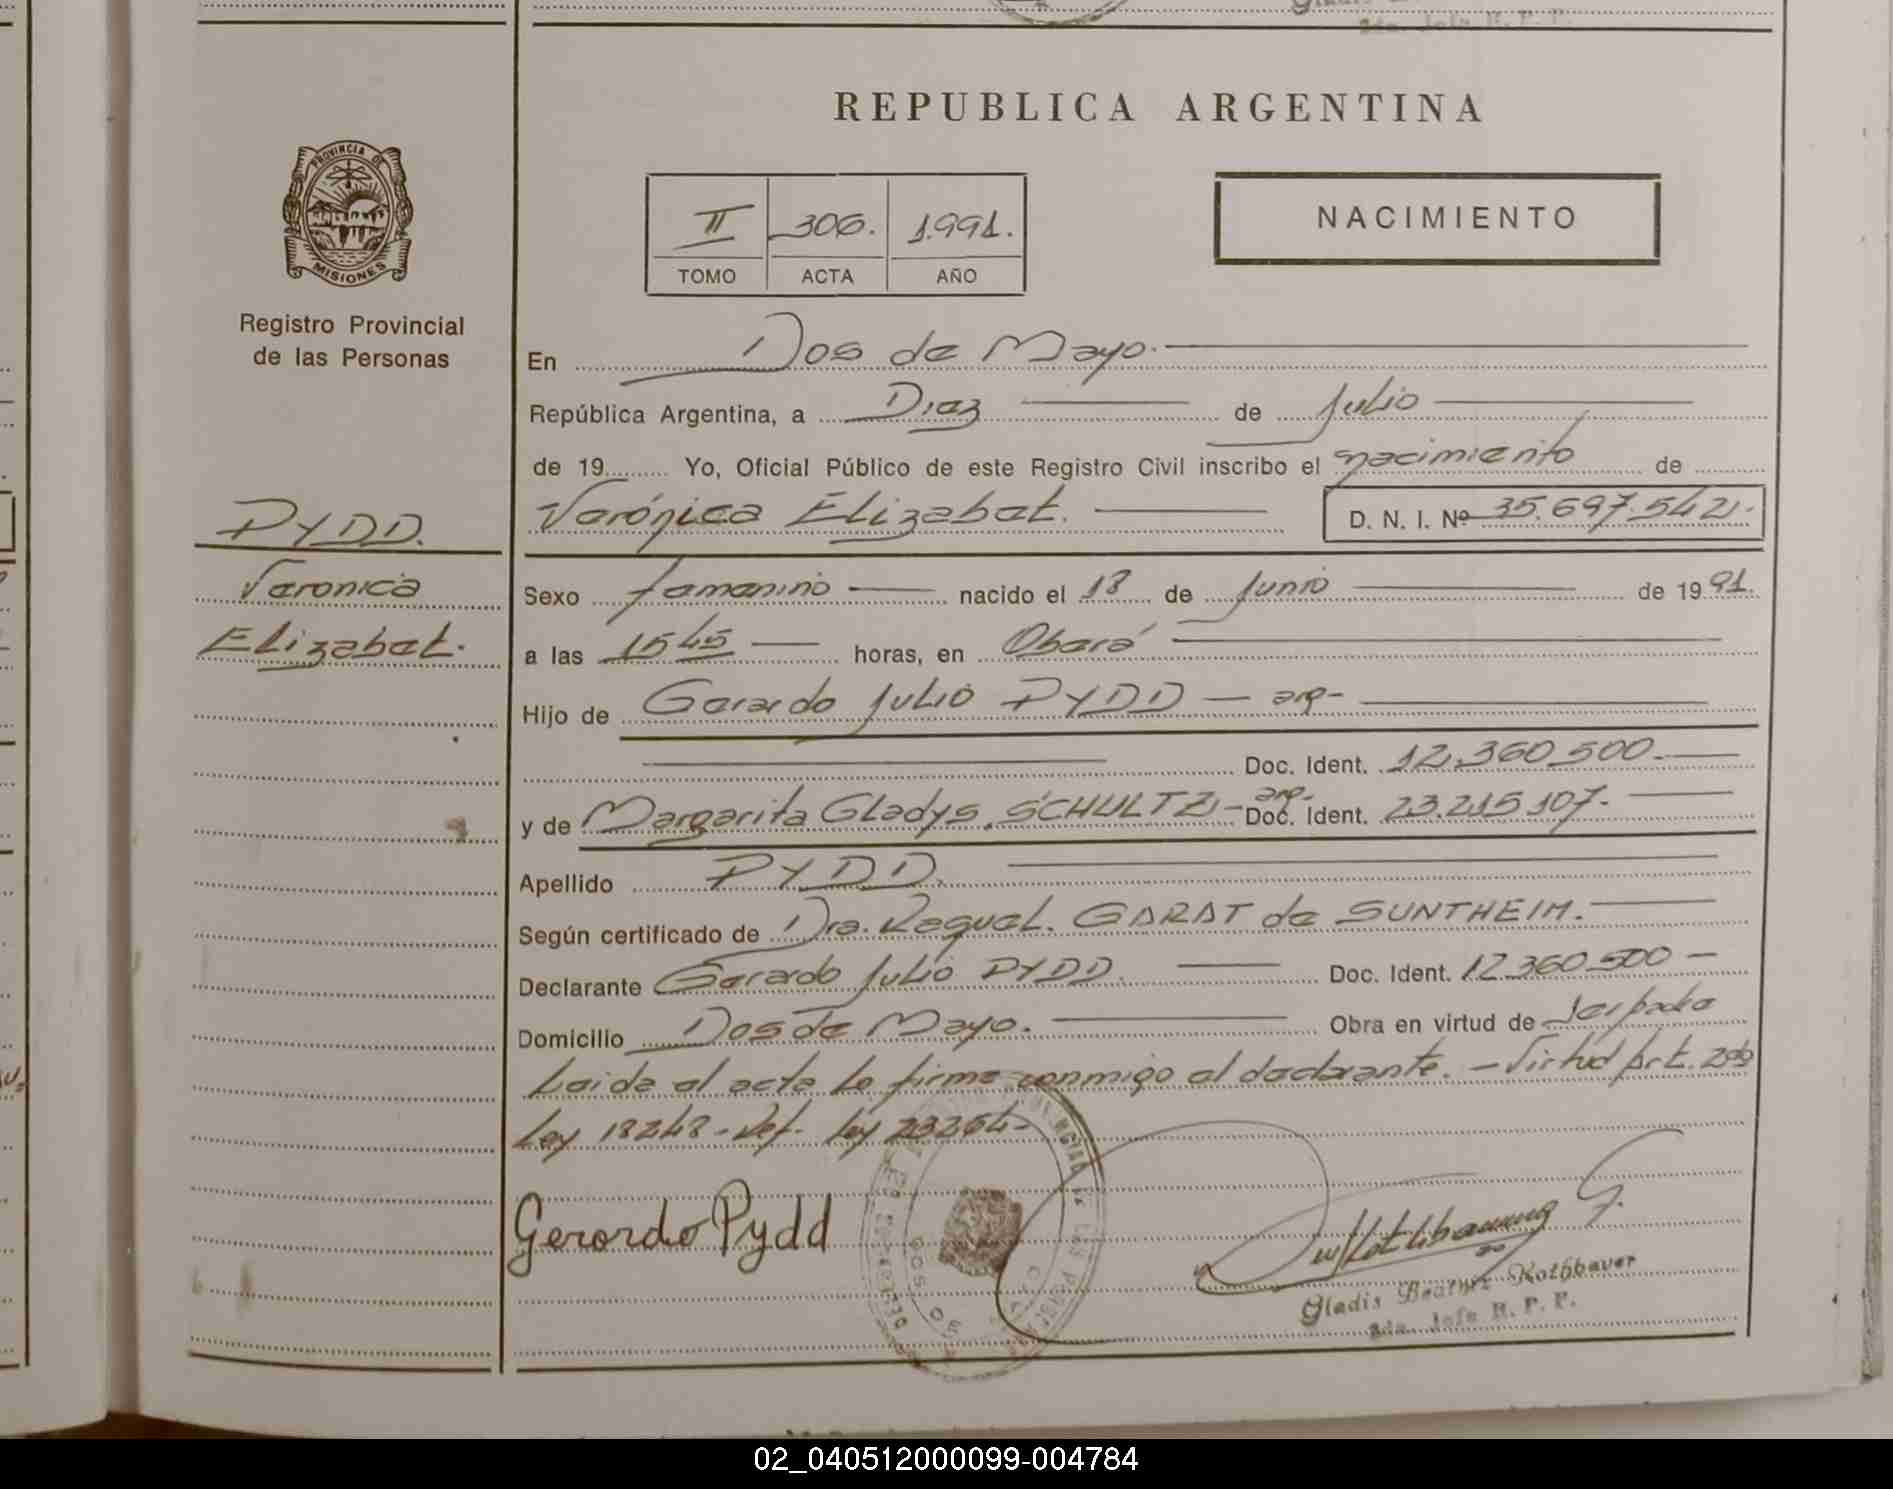 REPUBLICA ARGENTINA
PROVINCIA DE
MISIONES
Registro Provincial
de las Personas
II 306. 1.991.
TOMO ACTA AÑO
NACIMIENTO
En Dos de Mayo.
República Argentina, a Diez de Julio
de 19 Yo, Oficial Público de este Registro Civil inscribo el nacimiento de
Verónica Elizabet. D. N. I. Nº 35.697.542.
PYDD.
Veronica
Elizabet.
Sexo femenino nacido el 18 de Junio de 1991.
a las 15 45 horas, en Oberá
Hijo de Gerardo Julio PYDD - arg-
Doc. Ident. 12.360.500.
y de Margarita Gladys SCHULTZ - arg- Doc. Ident. 23.215.107.
Apellido PYDD.
Según certificado de Dra. Raquel. GARAT de SUNTHEIM.
Declarante Gerardo Julio PYDD. Doc. Ident. 12.360.500
Domicilio Dos de Mayo. Obra en virtud de ser padre
Leida el acta la firma conmigo el declarante. - Virtud Art.
Ley 18248 - Ley 23264-
Gerardo Pydd
Gladis Beatriz Rothbauer
2da. Jefe R. P. P.
02_040512000099-004784